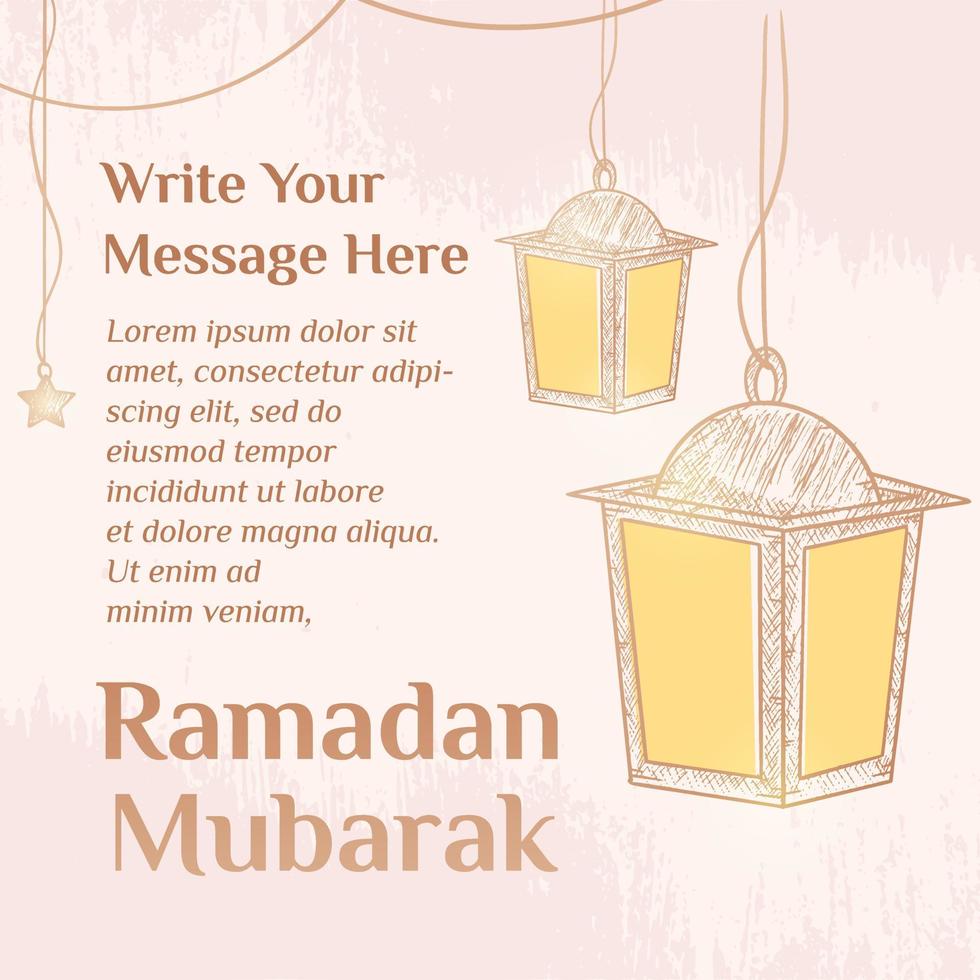 Write Your
Message Here
Lorem ipsum dolor sit
amet, consectetur adipi-
scing elit, sed do
eiusmod tempor
incididunt ut labore
et dolore magna aliqua.
Ut enim ad
minim veniam,
Ramadan
Mubarak